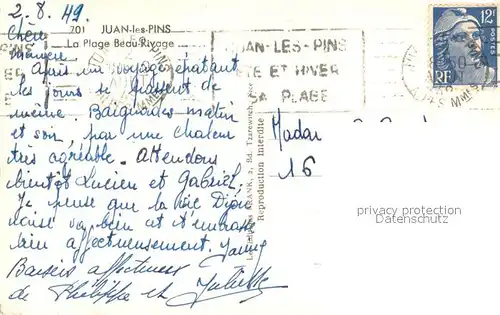 2.8.49.
701 JUAN-les-PINS
La Plage Beau Rivage
Chère
maman
Après un voyage épatant
les jours se passent de
même. Baignades matin
et soir, par une chaleur
très agréable. Attendons
bientôt Lucien et Gabriel.
Je pense que la vie Dijon
naise va bien et t'embrasse
bien affectueusement.
Baisers affectueux
de Philippe et Juliette
JUAN-LES-PINS
ETE ET HIVER
SA PLAGE
12F
POSTES
RF
Madam
16
Reproduction Interdite
privacy protection
Datenschutz